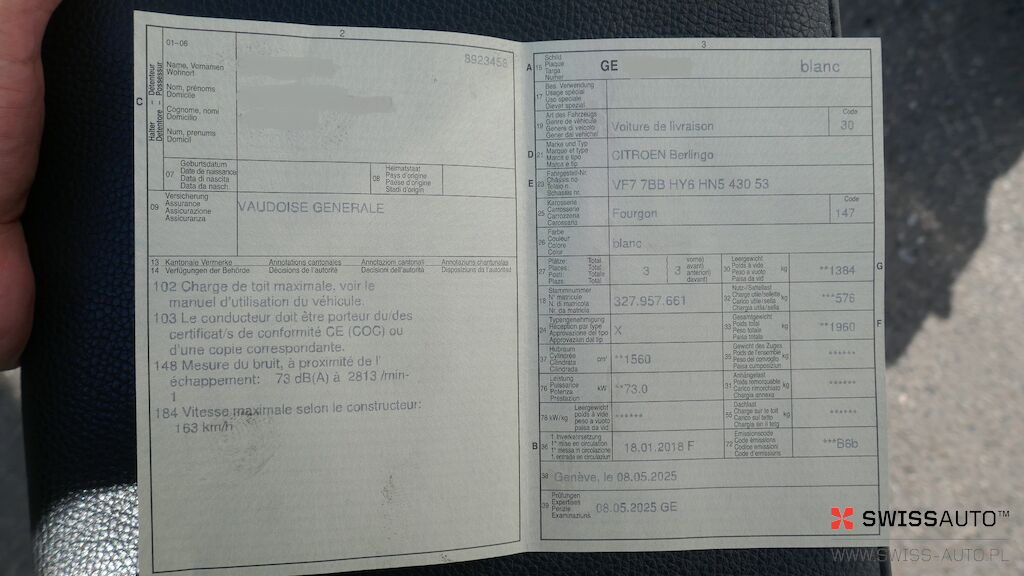 2
01-06
8923458
Name, Vornamen
Wohnort
Nom, prénoms
Domicile
Cognome, nomi
Domicilio
Num, prenums
Domicil
C
Halter – Détenteur
Detentore – Possessur
07
Geburtsdatum
Date de naissance
Data di nascita
Data da nasch.
08
Heimatstaat
Pays d'origine
Paese d'origine
Stadi d'origin
09
Versicherung
Assurance
Assicurazione
Assicuranza
VAUDOISE GENERALE
13 Kantonale Vermerke Annotations cantonales Annotazioni cantonali Annotaziuns chantunalas
14 Verfügungen der Behörde Décisions de l'autorité Decisioni dell'autorità Disposiziuns da l'autoritad
102 Charge de toit maximale, voir le
manuel d'utilisation du véhicule.
103 Le conducteur doit être porteur du/des
certificat/s de conformité CE (COC) ou
d'une copie correspondante.
148 Mesure du bruit, à proximité de l'
échappement: 73 dB(A) à 2813 /min-
1
184 Vitesse maximale selon le constructeur:
163 km/h
3
A 15
Schild
Plaque
Targa
Numer
GE
blanc
17
Bes. Verwendung
Usage spécial
Uso speciale
Diever spezial
19
Art des Fahrzeugs
Genre de véhicule
Genere di veicolo
Gener dal vehichel
Voiture de livraison
Code
30
D 21
Marke und Typ
Marque et type
Marca e tipo
Marca e tip
CITROEN Berlingo
E 23
Fahrgestell-Nr.
Châssis no
Telaio n.
Schassis nr.
VF7 7BB HY6 HN5 430 53
25
Karosserie
Carrosserie
Carrozzeria
Carossaria
Fourgon
Code
147
26
Farbe
Couleur
Colore
Color
blanc
27
Plätze: Total.
Places: Total.
Posti: Totale
Plazs: Total
3
3
vorne)
avant)
anteriori)
davant)
30
Leergewicht
Poids à vide
Peso a vuoto
Paisa da vid
kg
**1384
G
18
Stammnummer
N° matricule
N. di matricola
Nr. da matricla
327.957.661
32
Nutz-/Sattellast
Charge utile/sellette
Carico utile/sella
Chargia utila/sella
kg
***576
24
Typengenehmigung
Réception par type
Approvazione del tipo
Approvaziun dal tip
X
33
Gesamtgewicht
Poids total
Peso totale
Paisa totala
kg
**1960
F
37
Hubraum
Cylindrée
Cilindrata
Cilindrada
cm³
**1560
35
Gewicht des Zuges
Poids de l'ensemble
Peso del convoglio
Paisa cumposiziun
kg
******
76
Leistung
Puissance
Potenza
Prestaziun
kW
**73.0
31
Anhängelast
Poids remorquable
Carico rimorchiato
Chargia annexa
kg
******
78 kW/kg
Leergewicht
poids à vide
peso a vuoto
paisa da vid
******
55
Dachlast
Charge sur le toit
Carico sul tetto
Chargia sin il tetg
kg
******
B 36
1. Inverkehrsetzung
1re mise en circulation
1a messa in circolazione
1. entrada en circulaziun
18.01.2018 F
72
Emissionscode
Code émissions
Codice emissioni
Code d'emissiuns
***B6b
38 Genève, le 08.05.2025
39
Prüfungen
Expertises
Perizie
Examinaziuns
08.05.2025 GE
SWISSAUTO™
WWW.SWISS-AUTO.PL